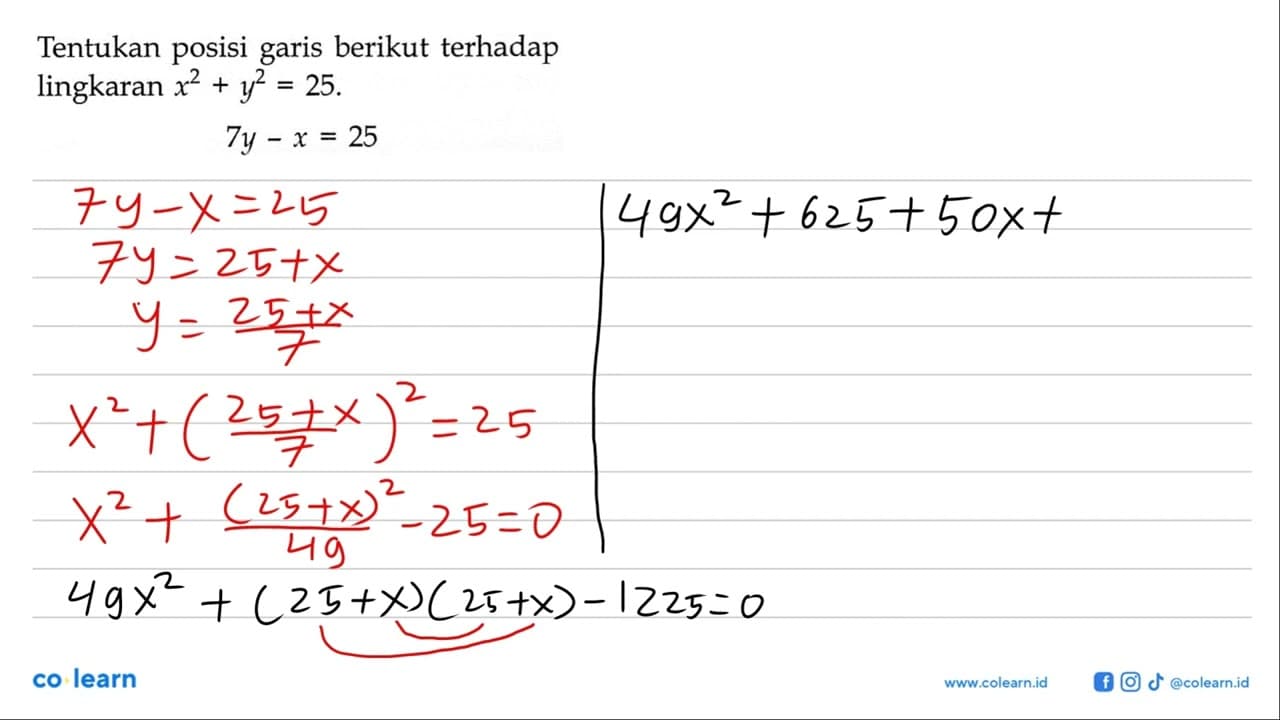 Tentukan posisi garis berikut terhadap
lingkaran x² + y² = 25.
7y - x = 25
7y - x = 25
7y = 25 + x
y = (25 + x)/7
x² + ((25 + x)/7)² = 25
x² + (25 + x)²/49 - 25 = 0
49x² + (25 + x)(25 + x) - 1225 = 0
49x² + 625 + 50x +
co learn
www.colearn.id
@colearn.id